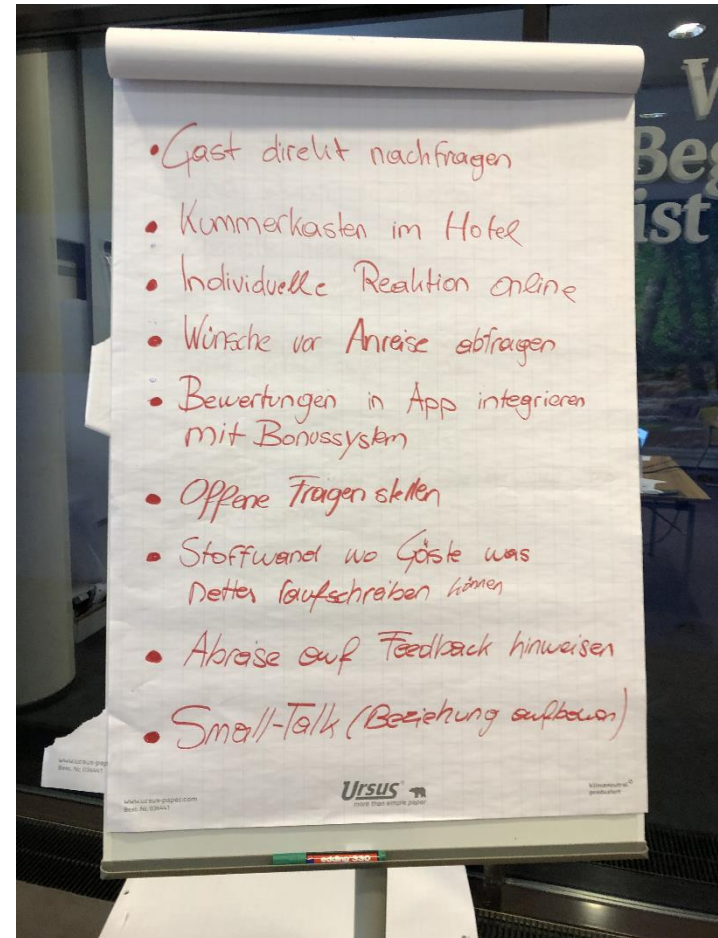 • Gast direkt nachfragen
• Kummerkasten im Hotel
• Individuelle Reaktion online
• Wünsche vor Anreise abfragen
• Bewertungen in App integrieren
mit Bonussystem
• Offene Fragen stellen
• Stoffwand wo Gäste was
nettes raufschreiben können
• Abreise auf Feedback hinweisen
• Small-Talk (Beziehung aufbauen)
www.ursus-paper.com
Best. Nr. 039441
Ursus
more than simple paper
klimaneutral
produziert
edding 330
Beg
ist